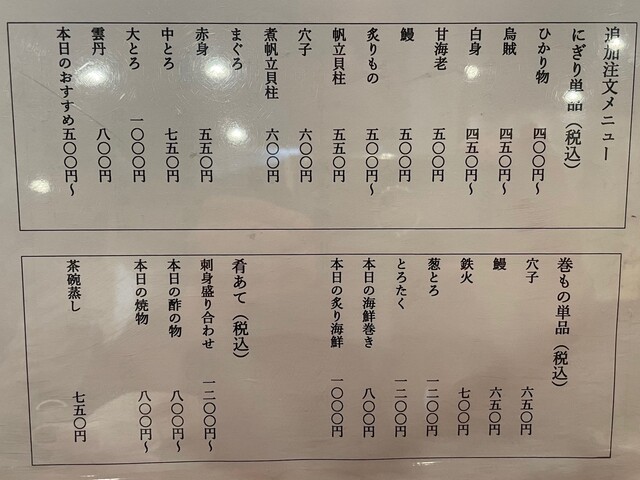 追加注文メニュー
にぎり単品（税込）
ひかり物 四〇〇円〜
烏賊 四五〇円〜
白身 四五〇円〜
甘海老 五〇〇円
鰻 五〇〇円
炙りもの 五〇〇円〜
帆立貝柱 五五〇円
穴子 六〇〇円
煮帆立貝柱 六〇〇円
まぐろ
赤身 五五〇円
中とろ 七五〇円
大とろ 一〇〇〇円
雲丹 八〇〇円
本日のおすすめ 五〇〇円〜
巻もの単品（税込）
穴子 六五〇円
鰻 六五〇円
鉄火 七〇〇円
葱とろ 一二〇〇円
とろたく 一二〇〇円
本日の海鮮巻き 八〇〇円
本日の炙り海鮮 一〇〇〇円
肴あて（税込）
刺身盛り合わせ 一二〇〇円〜
本日の酢の物 八〇〇円〜
本日の焼物 八〇〇円〜
茶碗蒸し 七五〇円